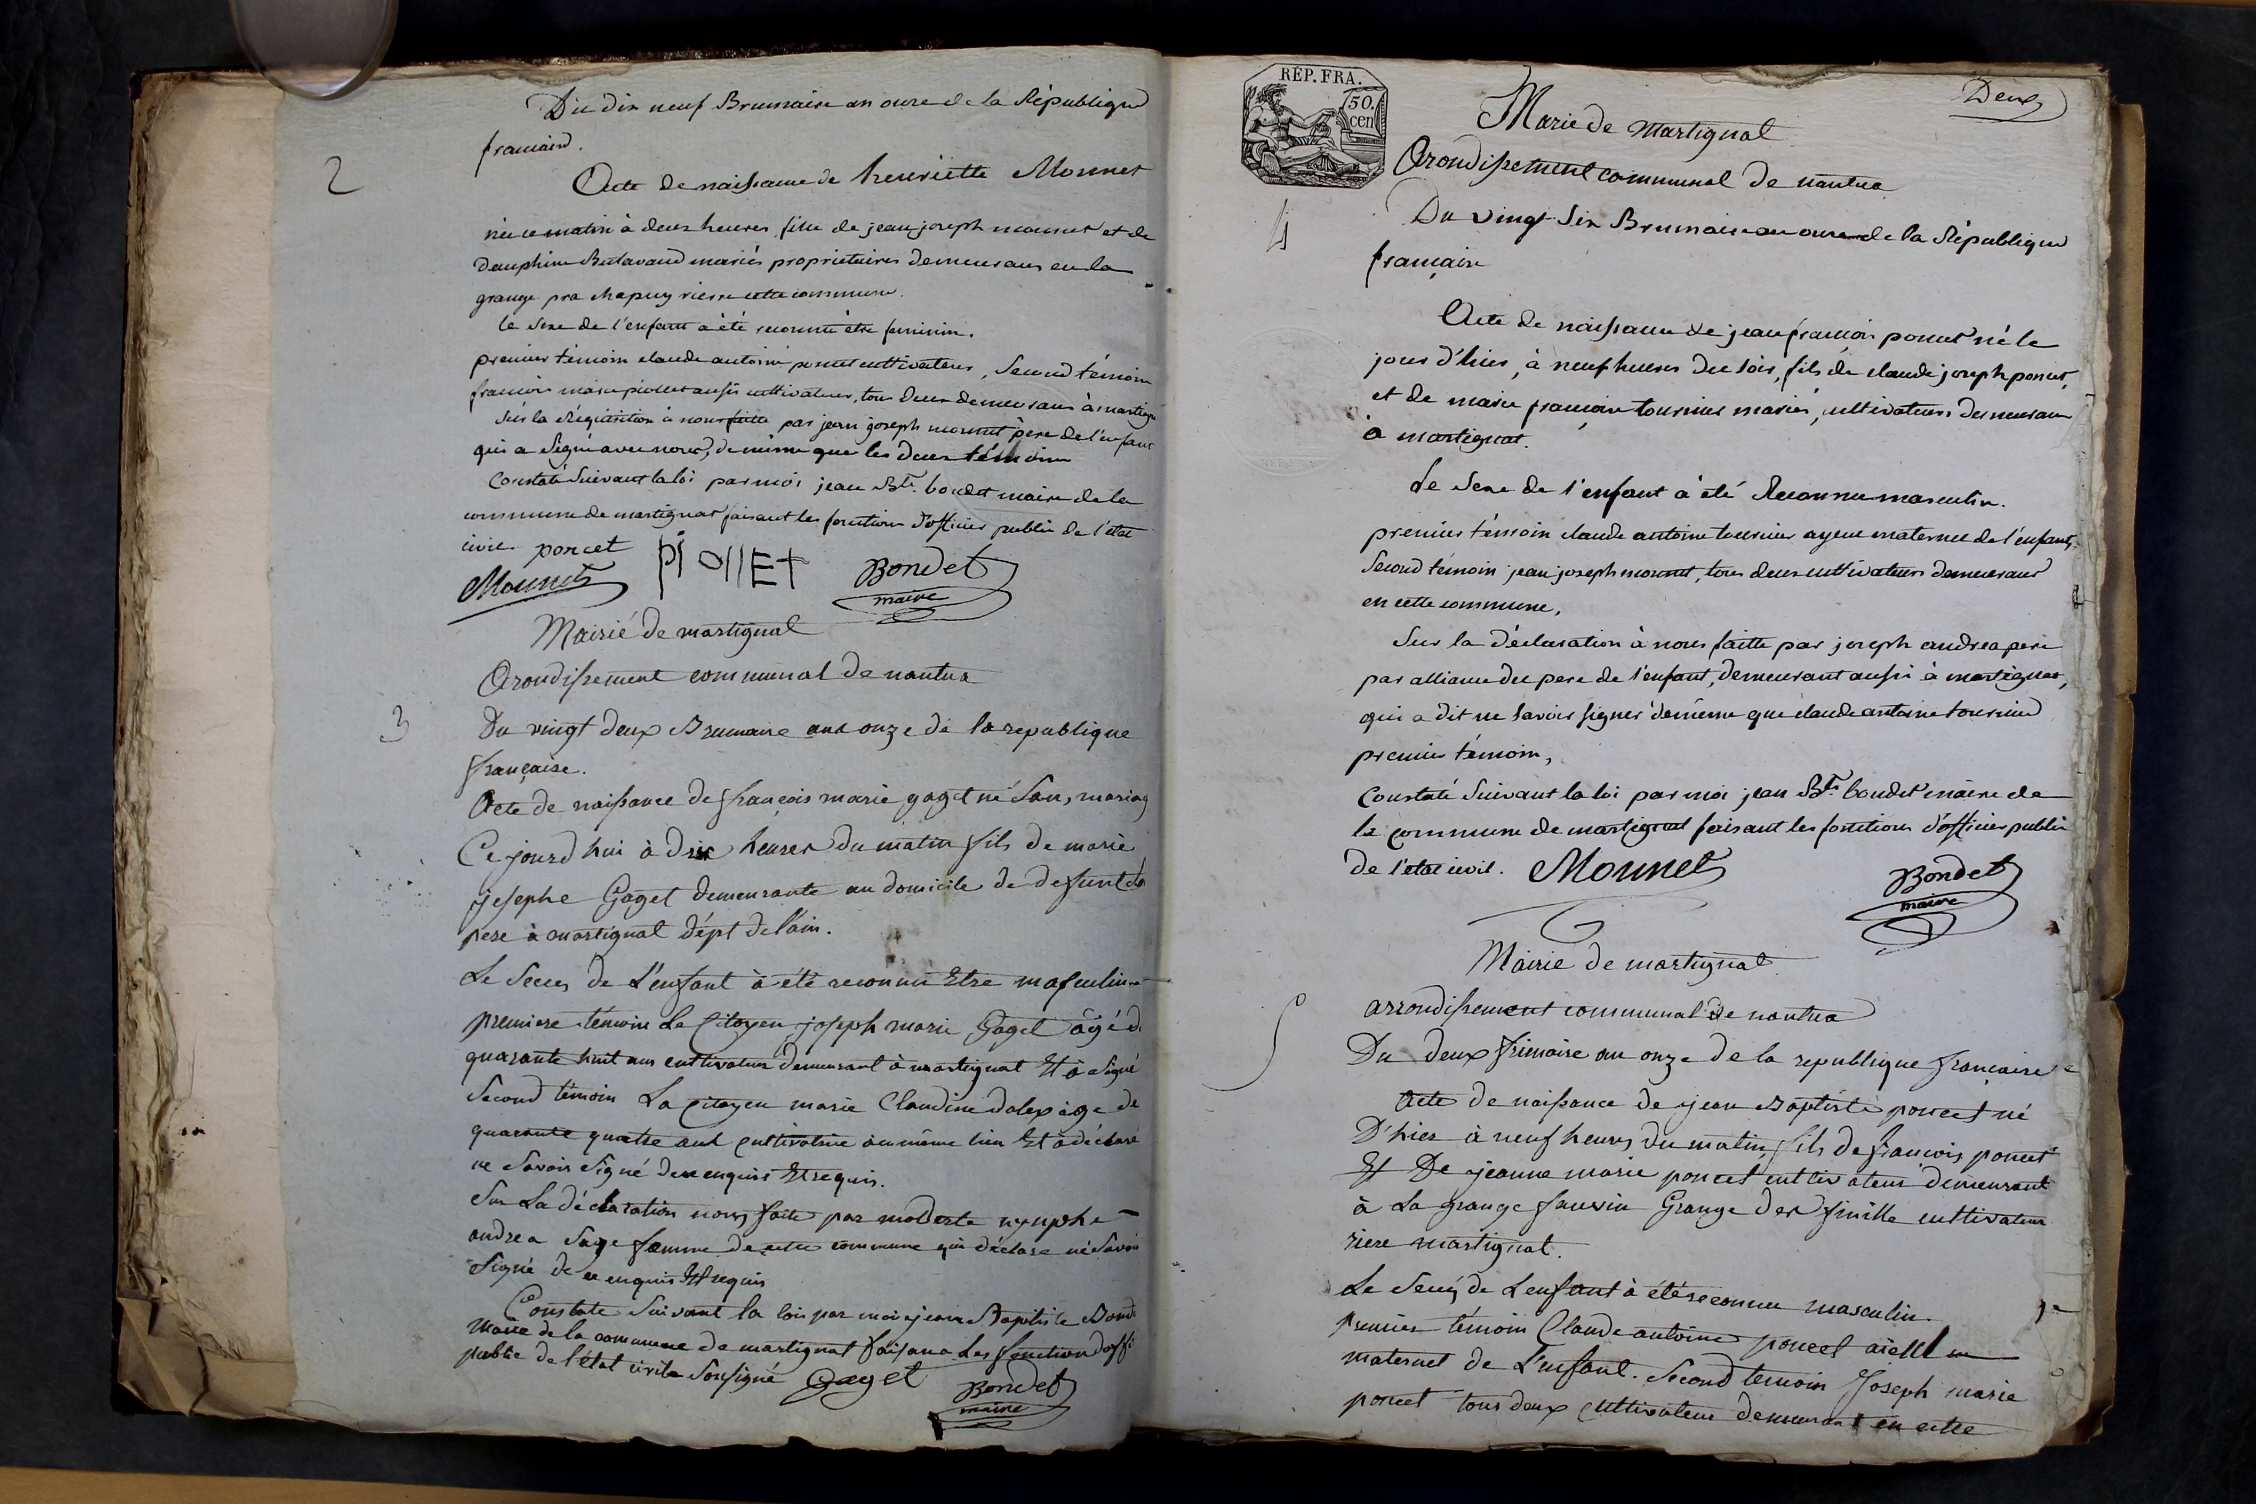 Du dix neuf Brumaire an onze de la République
francaise.
2
Acte de naissance de henriette Monnet
née ce matin à deux heures, fille de jean joseph monnet et de
Dauphine mariés propriétaires demeurans en la
grange pra chapuy riere cette commune.
le sexe de l'enfant a été reconnu être feminin.
premier témoin claude antoine poncet cultivateur, second témoin
francois marie piollet aussi cultivateur, tous deux demeurans à martigna
sur la réquisition à nous faitte par jean joseph monnet père de l'enfant
qui a signé avec nous, de même que les deux témoins
Constaté suivant la loi par moi jean Bte. bondet maire de la
commune de martignat faisant les fonctions d'officier public de l'état
civil. poncet
Monnet PiollEt Bondet
maire
Mairié de martignat
Arondissement communal de nantua
3
Du vingt deux Brumaire ans onze de la republique
française.
Acte de naissance de françois marie gaget né san, mariag
Ce jourd hui à dix heures du matin fils de marie
josephe Gaget demeurante au domicile de defunt
pere à martignat dépt de l'ain.
Le secces de L'enfant à été reconnu Etre masculin
premiere témoin Le Citoyen joseph marie Gaget âgé d
quarante huit ans cultivateur demeurant à martignat Et à signé
Second témoin La citoyen marie Claudine dalex âge de
quarante quatre ans cultivatrice au même lieu Et à déclaré
ne savoir signé de ce enquis Et requis.
Sur La déclaration nous faite par modeste nymphe
andrea sage femme de cette commune qui déclare né savoir
signé de ce enquis Et requis
Constate suivant la lois par moi jean Baptiste Bond
Marie de la commune de martignat faisana Les fonction d'offi
public de l'état civile sousigné Gaget
Bondet
maire
RÉP. FRA.
50.
cen
Deux
Marie de martignat
Arondissement communal de nantua
4
Du vingt six Brumaire an onze de la République
française
Acte de naissance de jean francois poncet né le
jour d'hier, à neuf heures du soir, fils de claude joseph poncet,
et de marie francoise tournier mariés, cultivateurs demeurans
à martignat.
Le sexe de l'enfant a été Reconnu masculin.
premier témoin claude antoine tournier ayeul maternel de l'enfant,
second témoin jean joseph monnet, tous deux cultivateurs demeurans
en cette commune,
Sur la déclaration à nous faitte par joseph andrea pere
par alliance du pere de l'enfant, demeurant aussi à martignat,
qui a dit ne savoir signer de même que claude antoine tournier
premier témoin,
Constaté suivant la loi par moi jean Bte. bondet maire de
la commune de martignat faisant les fonctions d'officier public
de l'état civil. Monnet Bondet
maire
Mairie de martignat
5
arrondissement communal de nantua
Du deux frimaire an onze de la republique francaise
Acte de naissance de jean Baptiste poncet né
D'hier à neuf heures du matin, fils de francois poncet
Et De jeanne marie poncet cultivateur demeurant
à La grange Grange des cultivateur
riere martignat.
Le secces de L'enfant à été reconnu masculin.
premier témoin Claude antoine poncet aieul
maternel de L'enfant. Second temoin Joseph marie
poncet tous deux cultivateur demeurant en cette